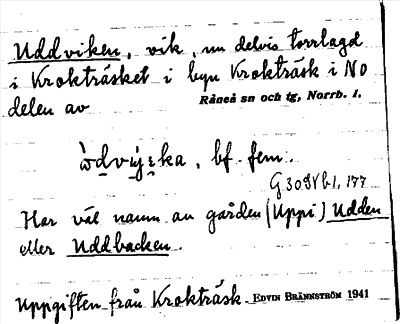 Uddviken, vik, nu delvis torrlagd
i Krokträsket i byn Krokträsk i NO
delen av
Råneå sn och tg, Norrb. l.
bf. fem.
Har väl namn av gården (Uppi) Udden
eller Uddbacken.
Uppgiften från Krokträsk EDVIN BRÄNNSTRÖM 1941